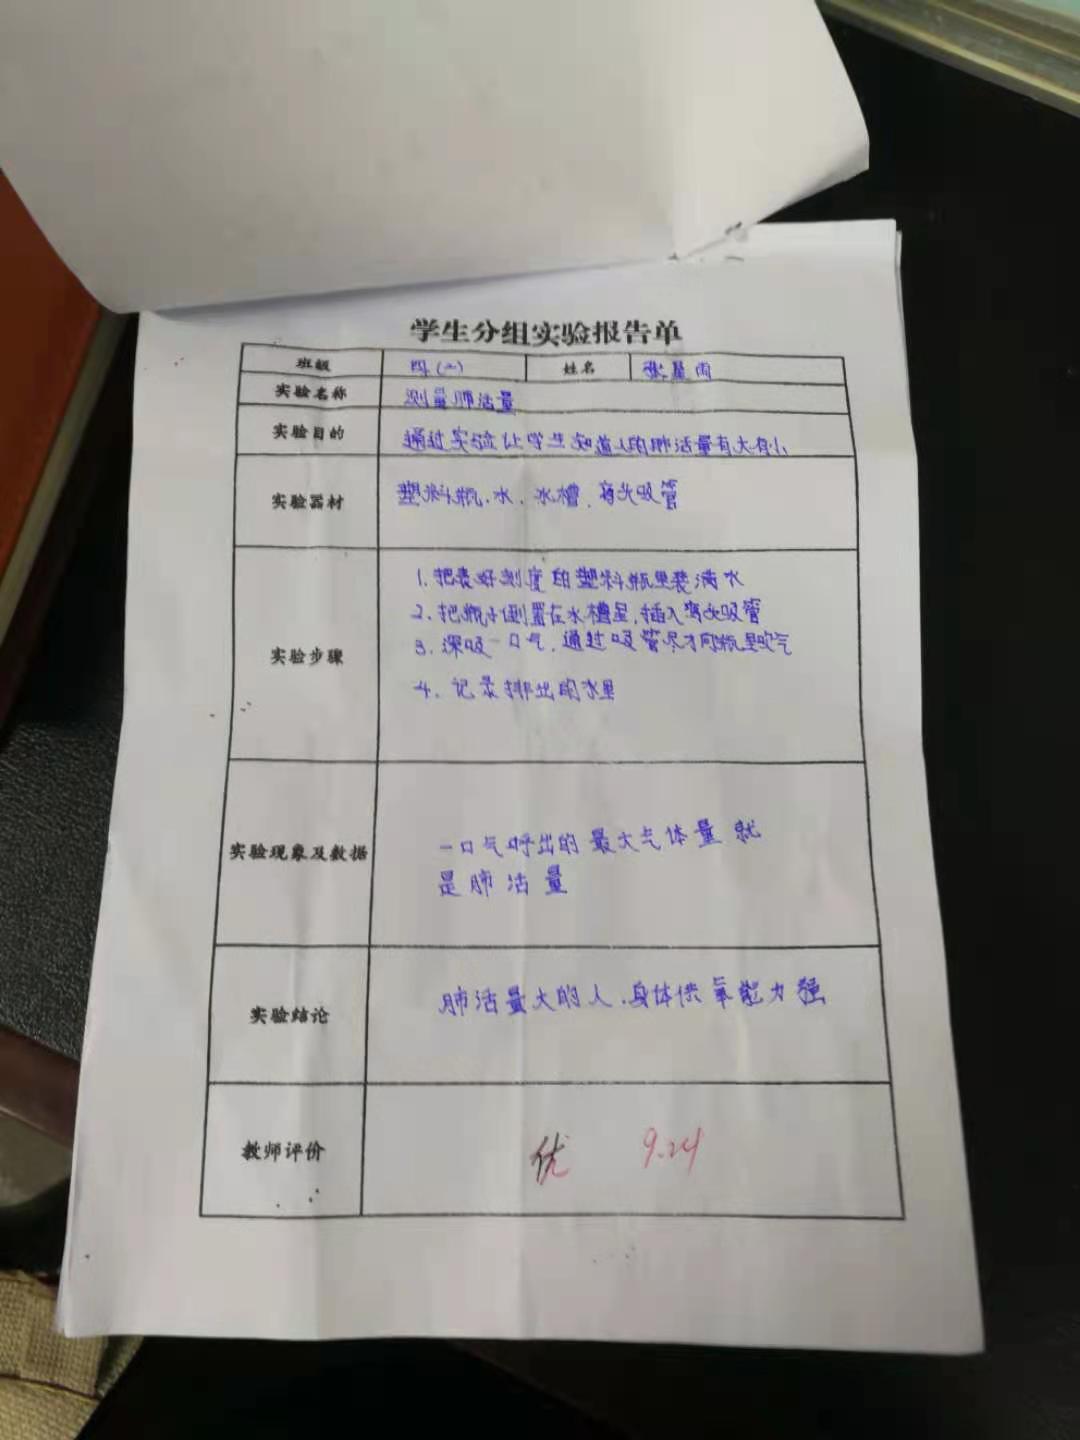 学生分组实验报告单
班级 四(二) 姓名 张星雨
实验名称 测量肺活量
实验目的 通过实验让学生知道人的肺活量有大有小
实验器材 塑料瓶、水、水槽、弯头吸管
实验步骤
1. 把表好刻度的塑料瓶里装满水
2. 把瓶子倒置在水槽里,插入弯头吸管
3. 深吸一口气,通过吸管尽力向瓶里吹气
4. 记录排出的水量
实验现象及数据
一口气呼出的最大气体量就
是肺活量
实验结论 肺活量大的人,身体供氧能力强
教师评价 优 9.24